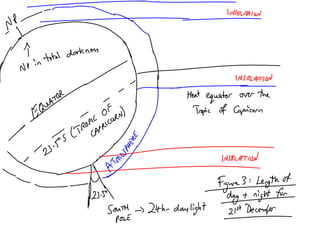 INSOLATION
NP
NP in total darkness
INSOLATION
Heat equator over the
Tropic of Capricorn
EQUATOR
23.5°S (TROPIC OF
CAPRICORN)
ATMOSPHERE
INSOLATION
23.5°
SOUTH
POLE → 24hr daylight
Figure 3: Length of
day + night for
21st December